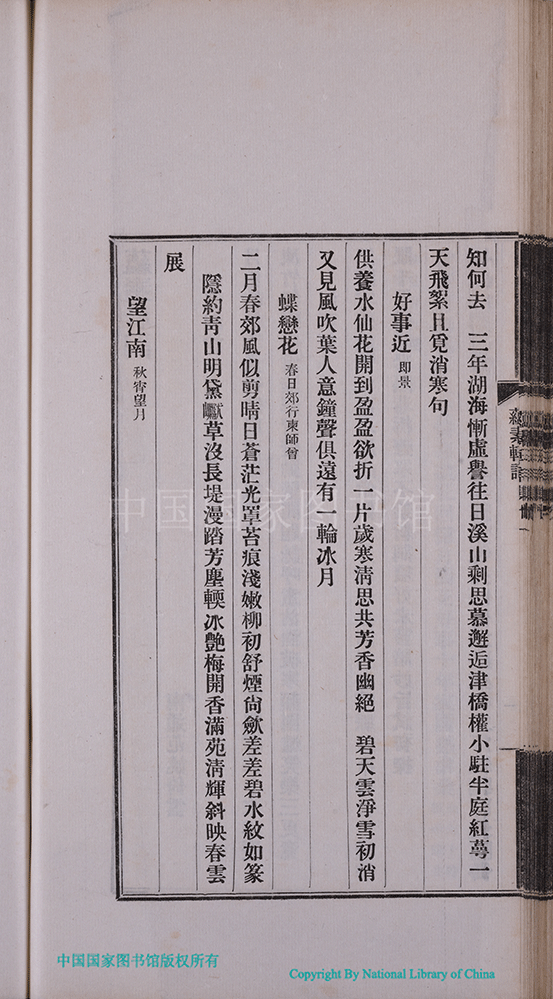 知何去　三年湖海慚虛譽往日溪山剩思慕邂逅津橋權小駐半庭紅萼一
天飛絮且覓消寒句
好事近 即景
供養水仙花開到盈盈欲折一片歲寒淸思共芳香幽絕　碧天雲淨雪初消
又見風吹葉人意鐘聲俱遠有一輪冰月
蝶戀花 春日郊行柬師曾
二月春郊風似剪晴日蒼茫光罩苔痕淺嫩柳初舒煙尙斂差差碧水紋如篆
隱約靑山明黛巘草沒長堤漫踏芳塵輭冰艷梅開香滿苑淸輝斜映春雲
展
望江南 秋宵望月
中国国家图书馆
中国国家图书馆版权所有
Copyright By National Library of China